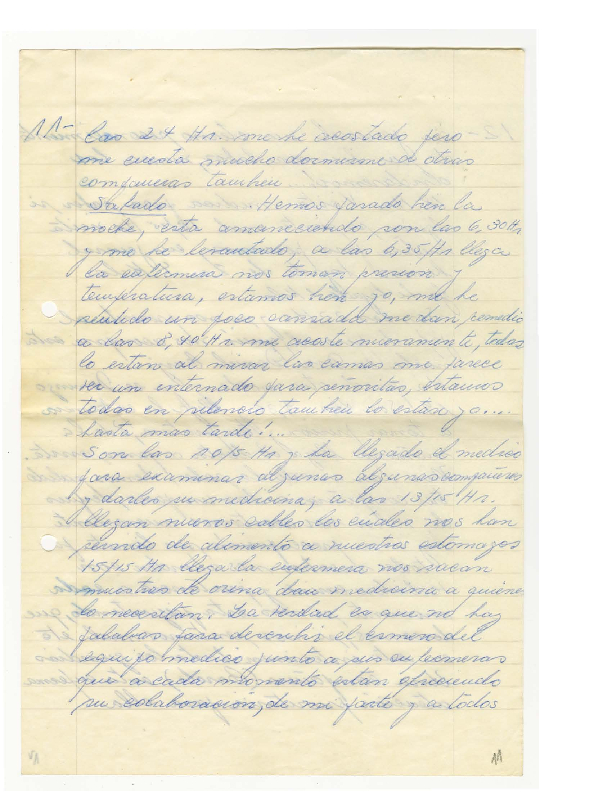 11- Las 24 Hr. me he acostado pero
me cuesta mucho dormirme a otras
compañeras tambien.
Sabado. Hemos pasado bien la
noche, esta amaneciendo, son las 6,30 Hr
y me he levantado, a las 6,35 Hr llega
la enfermera nos toman presion y
temperatura, estamos bien yo, me he
sentido un poco cansada me dan remedio
a las 8,40 Hr me acoste nuevamente, todas
lo estan al mirar las camas me parece
ver un internado para señoritas, estamos
todas en silencio tambien lo estan yo....
hasta mas tarde!...
Son las 10/5 Hr y ha llegado el medico
para examinar algunas algunas compañeras
y darles su medicina, a las 13/15 Hr.
llegan nuevos cables los cuales nos han
servido de alimento a nuestros estomagos
15/15 Hr llega la enfermera nos sacan
muestras de orina, dan medicina a quiene
lo necesitan. La verdad es que no hay
palabras para describir el esmero del
equipo medico junto a sus enfermeras
que a cada momento estan ofreciendo
su colaboración, de mi parte y a todos
11